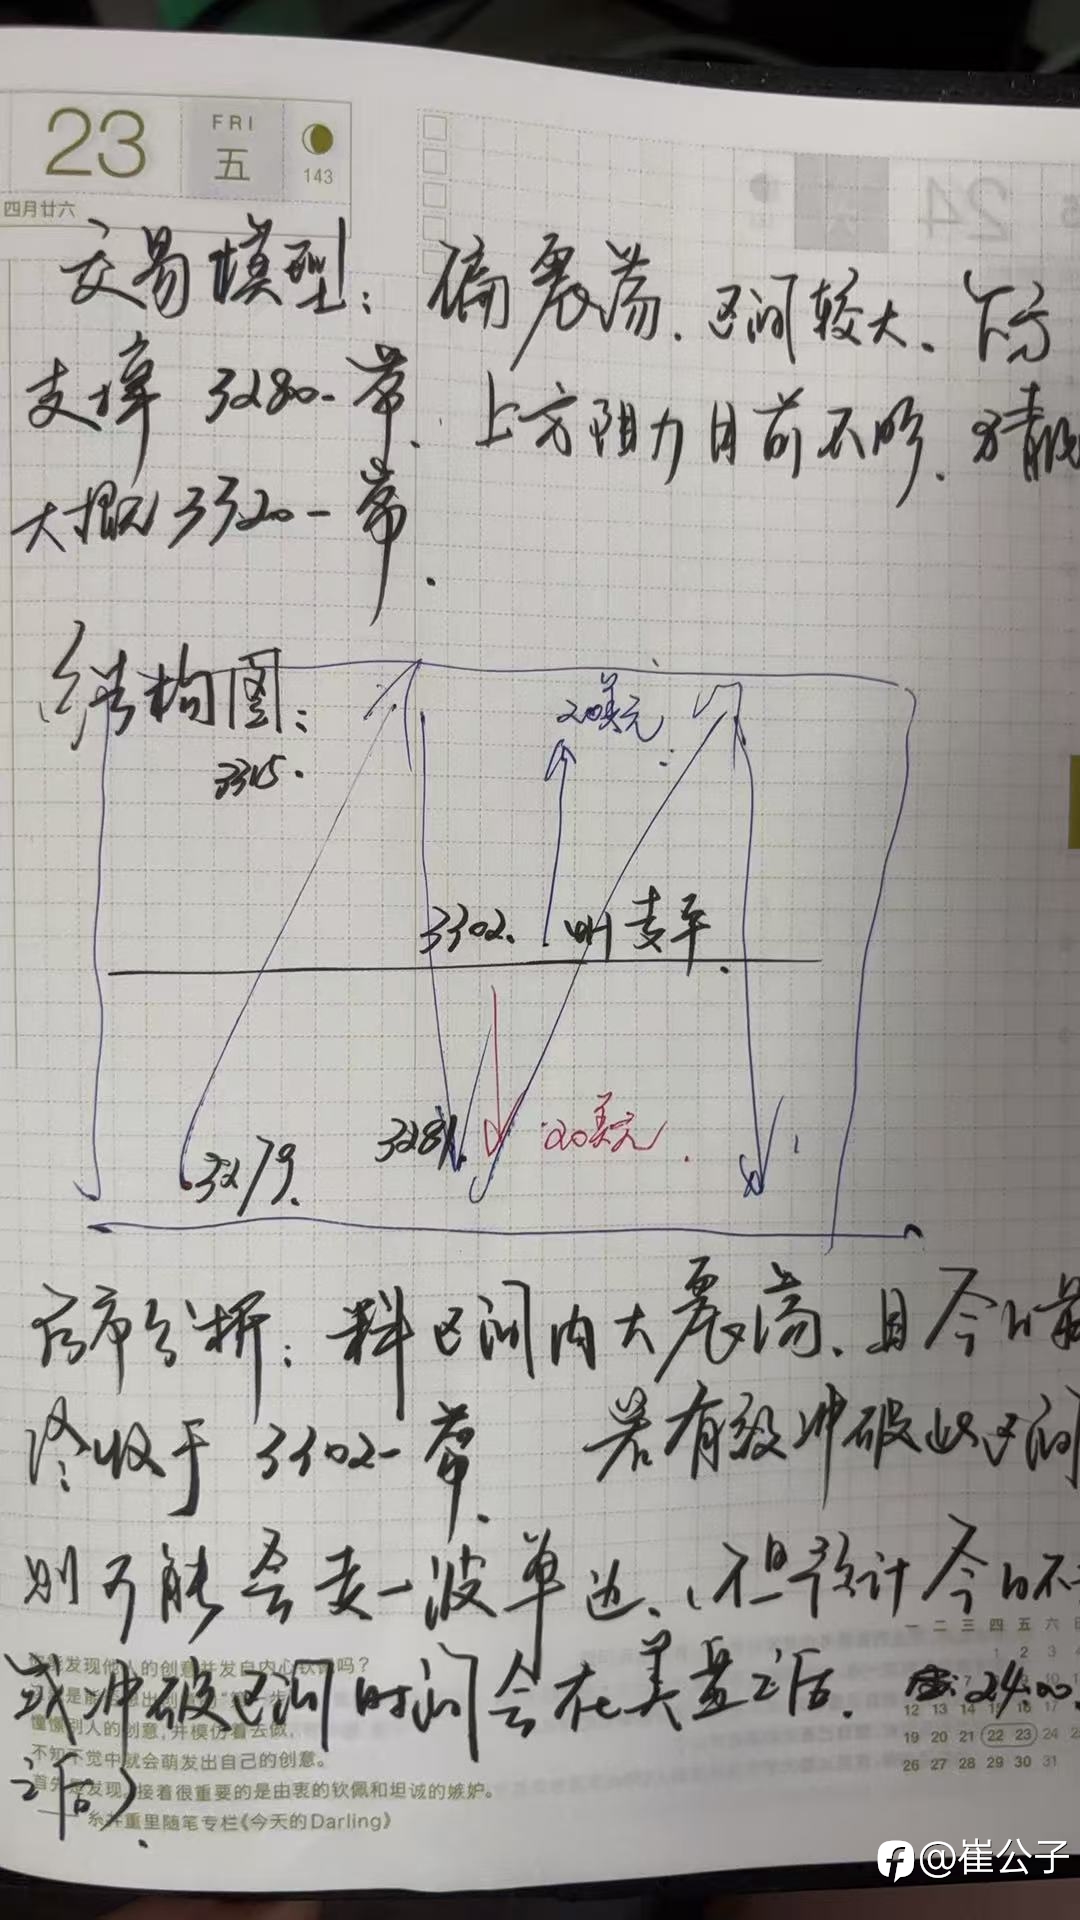 23
FRI
五
143
四月廿六
24
交易模型：偏震荡．区间较大．下方
支撑 3280一带．上方阻力目前不明．猜测
大概3320一带．
结构图：
3315.
20美元
3302. 4H支平
3281.
20美元
3279.
后市分析：料区间内大震荡．且今日最
终收于 3302一带．若有效冲破此区间
则可能会走一波单边．（但预计今日不
或冲破区间时间会在美盘之后．24:00
之后）．
发现他人的创意并发自内心钦佩吗？
憧憬别人的创意，并模仿着去做，
不知不觉中就会萌发出自己的创意。
首先是发现，接着很重要的是由衷的钦佩和坦诚的嫉妒。
糸井重里随笔专栏《今天的Darling》
一 二 三 四 五 六 日
1 2 3
12 13 14 15 16 17
19 20 21 22 23 24
26 27 28 29 30 31
@崔公子